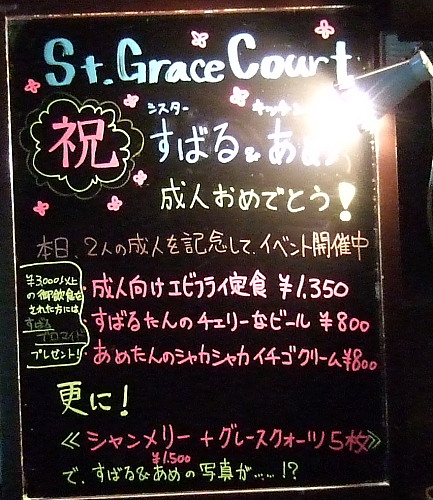 St. Grace Court
祝
シスター キッチン
すばる&あめ
成人おめでとう!
本日 2人の成人を記念して、イベント開催中
¥3,000以上
の御飲食を
された方には
すばる
ブロマイド
プレゼント!
・成人向けエビフライ定食 ¥1,350
・すばるたんのチェリーなビール ¥800
・あめたんのシャカシャカイチゴクリーム¥800
更に!
≪シャンメリー+グレースクォーツ5枚≫
¥1,500
で、すばる&あめの写真が……!?